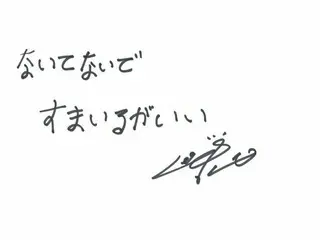 ないてないで
すまいるがいい